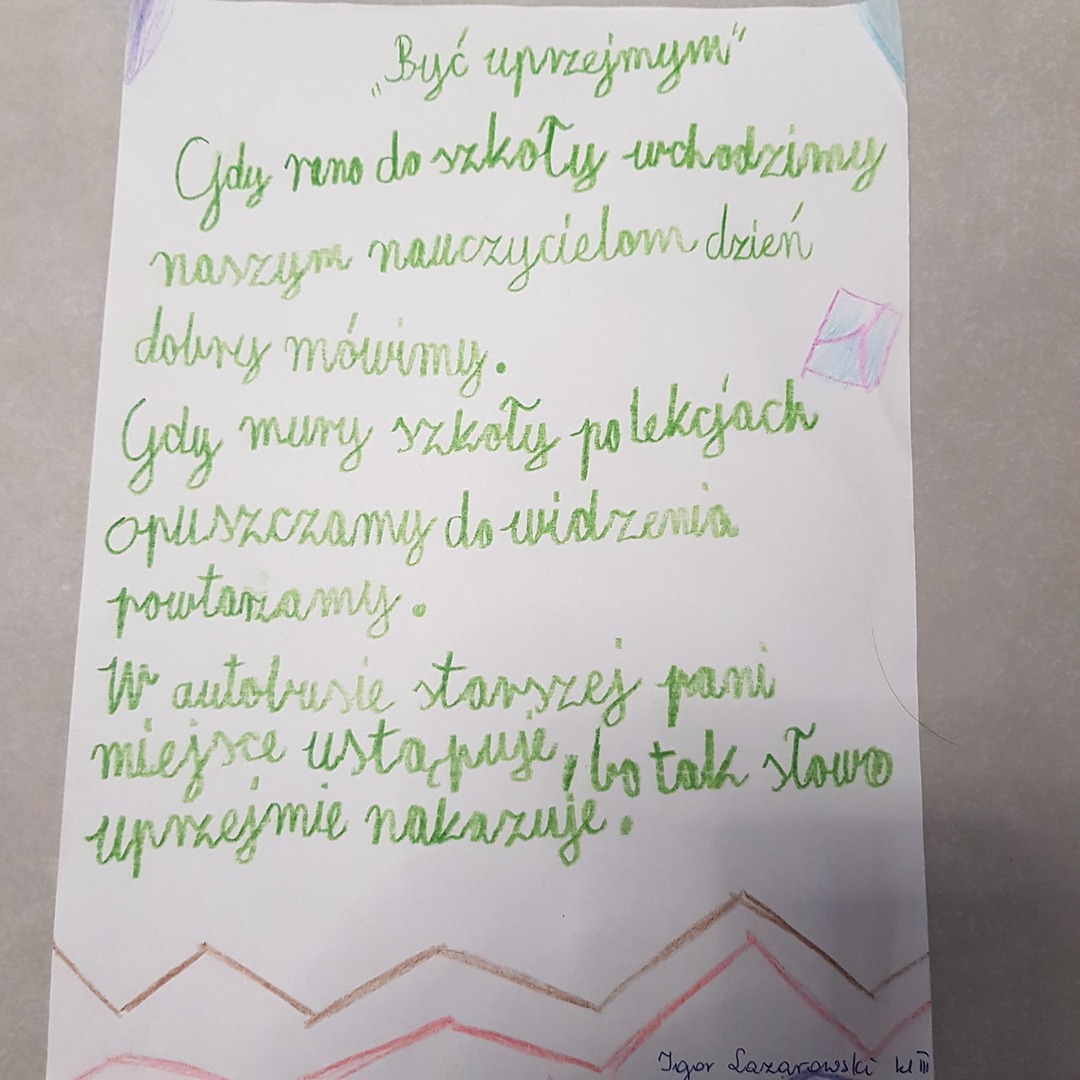 „Być uprzejmym"
Gdy rano do szkoły wchodzimy
naszym nauczycielom dzień
dobry mówimy.
Gdy mury szkoły po lekcjach
opuszczamy do widzenia
powtarzamy.
W autobusie starszej pani
miejsce ustąpuje, bo tak słowo
uprzejmie nakazuje.
Igor Łazarowski kl III